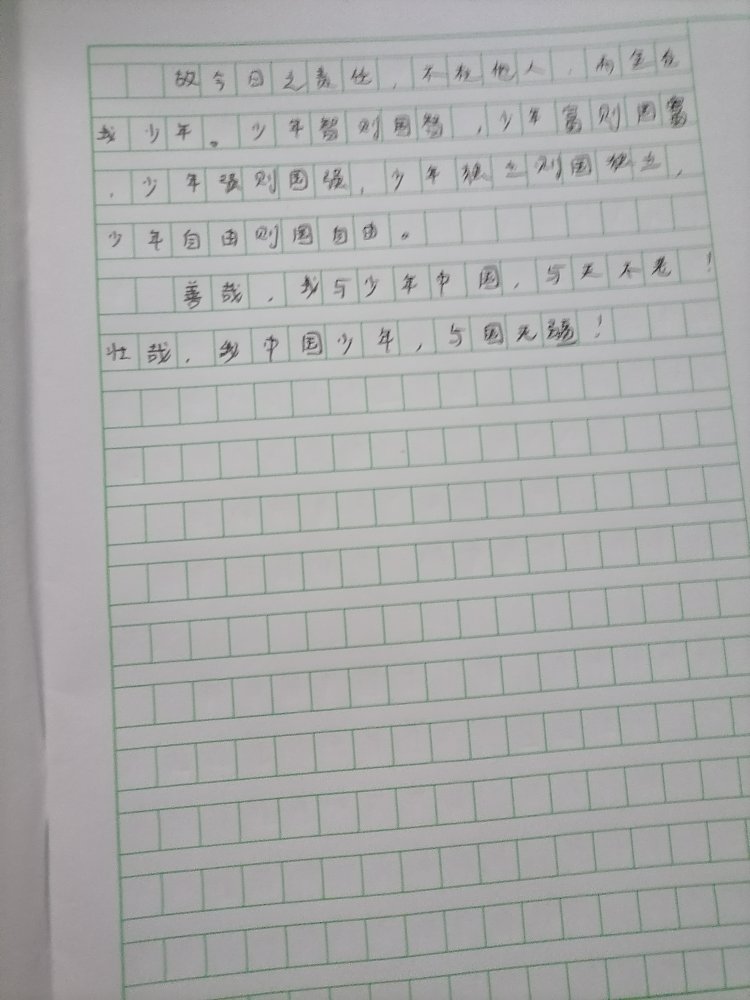 故今日之责任，不在他人，而全在
我少年。少年智则国智，少年富则国富
，少年强则国强，少年独立则国独立，
少年自由则国自由。
善哉，我与少年中国，与天不老！
壮哉，我中国少年，与国无疆！